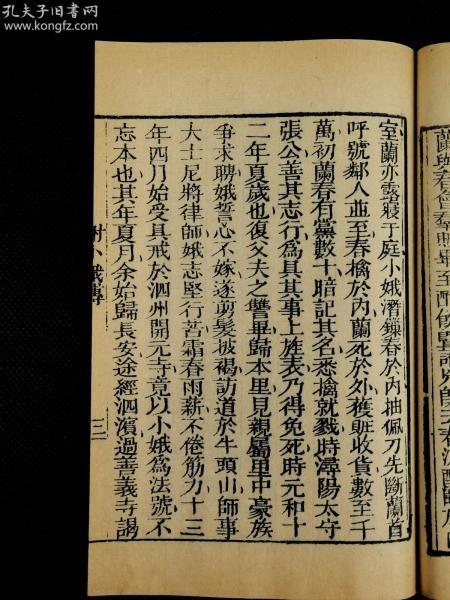 孔夫子旧書网
www.kongfz.com
室蘭亦露寢于庭小娥潛鏁春於內抽佩刀先斷蘭首
呼號鄰人並至春擒於內蘭死於外獲賍收貨數至千
萬初蘭春有黨數十暗記其名悉擒就戮時潯陽太守
張公善其志行爲具其事上旌表乃得免死時元和十
二年夏歲也復父夫之讐畢歸本里見親屬里中豪族
爭求聘娥誓心不嫁遂剪髮披褐訪道於牛頭山師事
大士尼將律師娥志堅行苦霜舂雨薪不倦筋力十三
年四月始受具戒於泗州開元寺竟以小娥爲法號不
忘本也其年夏月余始歸長安途經泗濱過善義寺謁
小娥傳
三